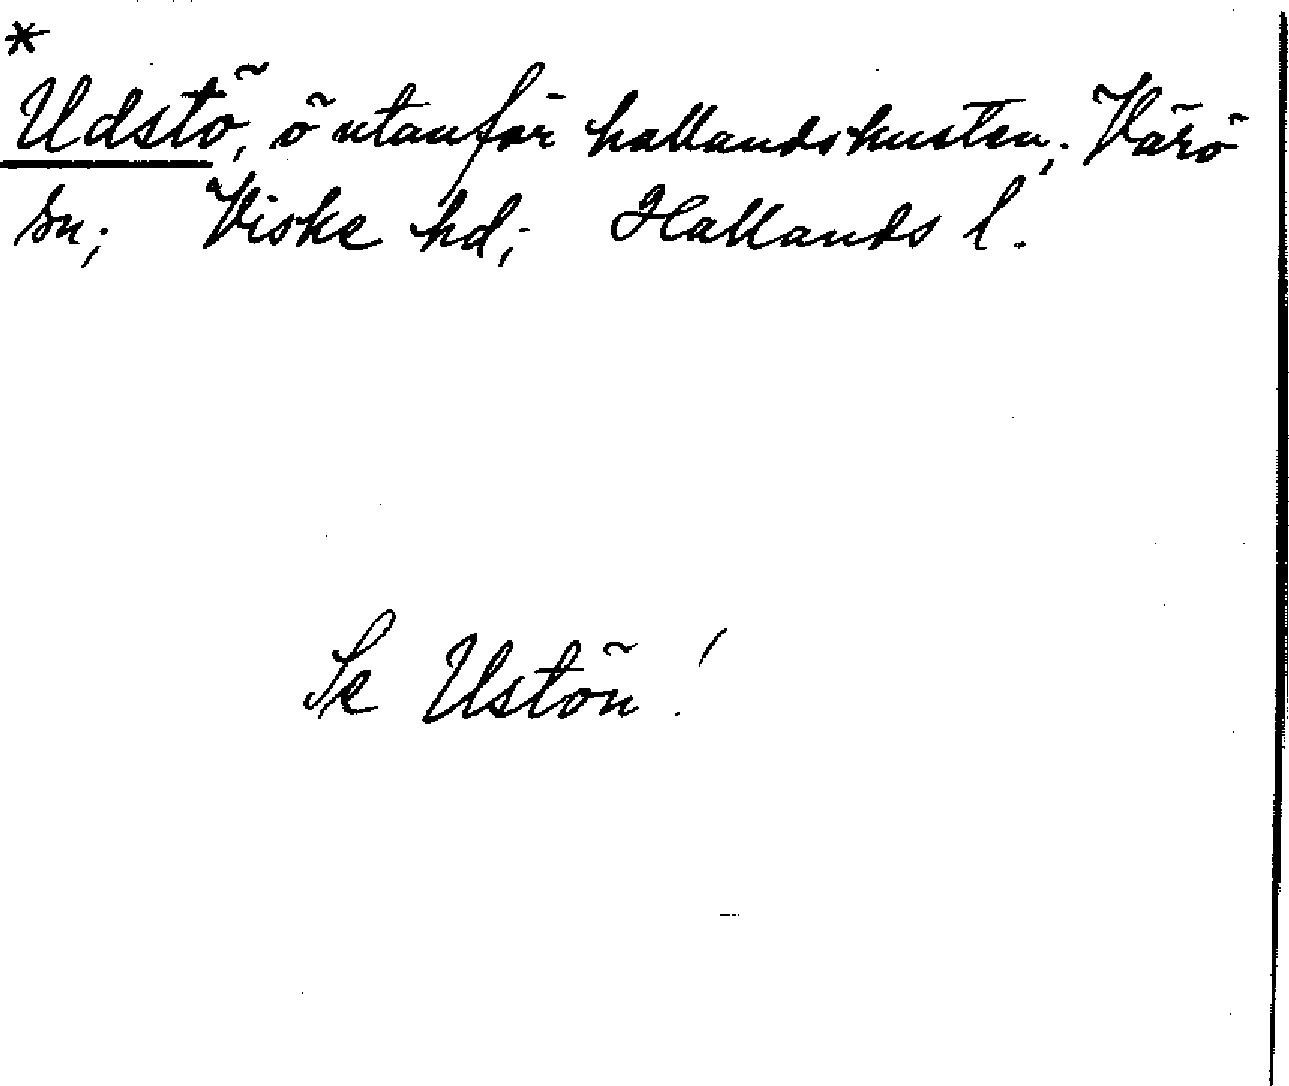 *
Udstö, ö utanför hallandskusten; Värö
sn; Viske hd; Hallands l.
Se Ustön!